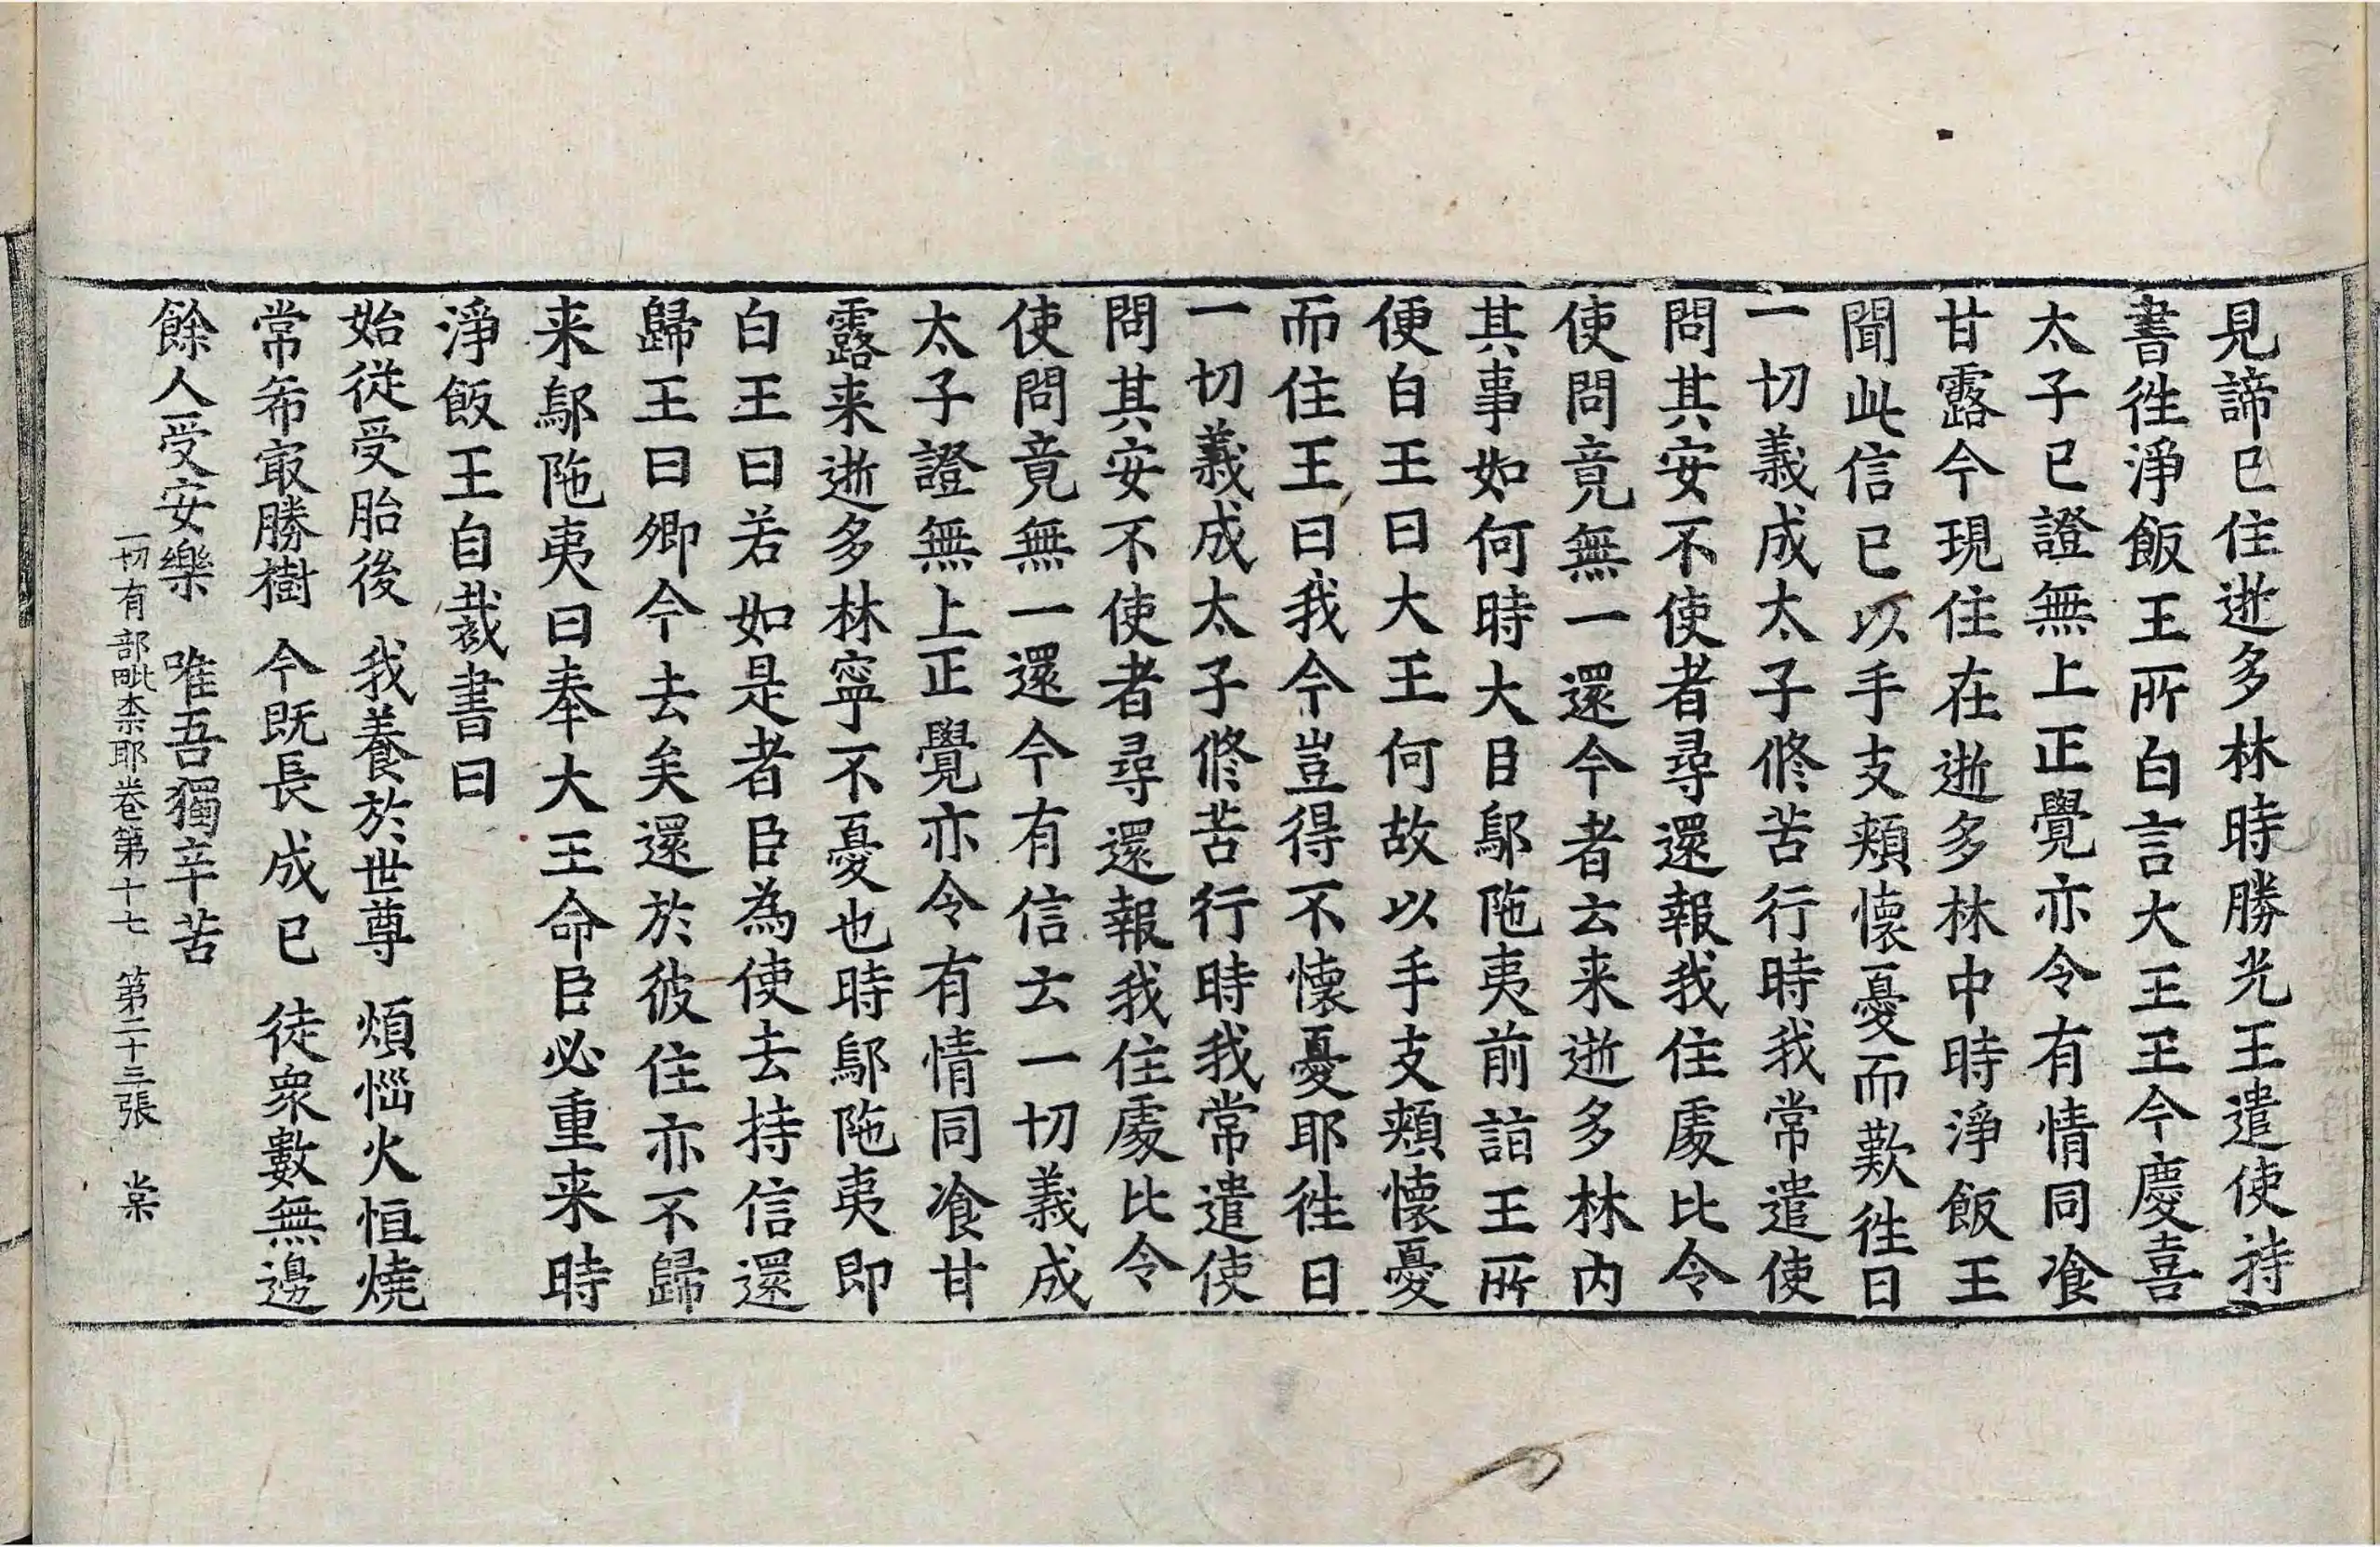 見諦已住逝多林時勝光王遣使持
書徃淨飯王所白言大王王今慶喜
太子已證無上正覺亦令有情同飡
甘露今現住在逝多林中時淨飯王
聞此信已以手支頬懷憂而歎徃日
一切義成太子修苦行時我常遣使
問其安不使者尋還報我住䖏比令
使問竟無一還今者云来逝多林内
其事如何時大臣鄔陁夷前詣王所
便白王曰大王何故以手支頬懷憂
而住王曰我今豈得不懷憂耶徃日
一切義成太子修苦行時我常遣使
問其安不使者尋還報我住䖏比令
使問竟無一還今有信云一切義成
太子證無上正覺亦令有情同飡甘
露来逝多林寧不憂也時鄔陁夷即
白王曰若如是者臣為使去持信還
歸王曰卿今去矣還於彼住亦不歸
来鄔陁夷曰奉大王命臣必重来時
淨飯王自裁書曰
始從受胎後 我養於世尊 煩惱火恒燒
常希冣勝樹 今既長成已 徒衆數無邊
餘人受安樂 唯吾獨辛苦
一切有部毗柰耶卷第十七 第二十三張 棠